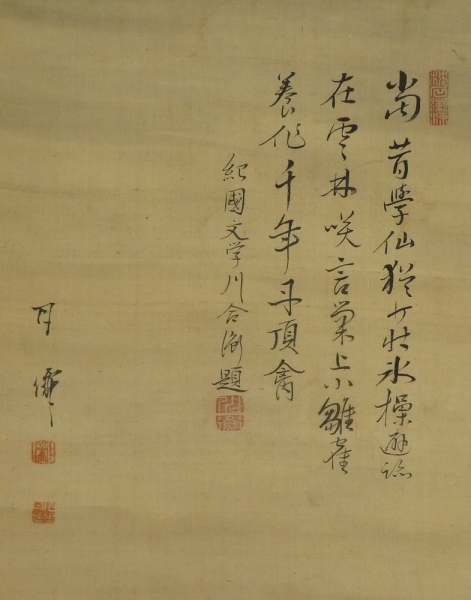 當昔學仙猶少壮氷操
在雲林咲言巢上小雛雀
養作千年丹頂禽
紀國文学川合衡題
月僊